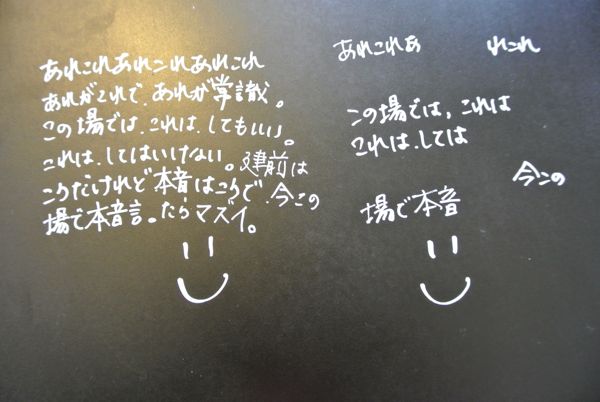 あれこれあれこれあれこれ
あれがこれで、あれが常識。
この場では、これは、してもいい。
これは、してはいけない。建前は
こうだけれど本音はこうで、今この
場で本音言ったらマズイ。
あれこれあ れこれ
この場では、これは
これは、しては
今この
場で本音